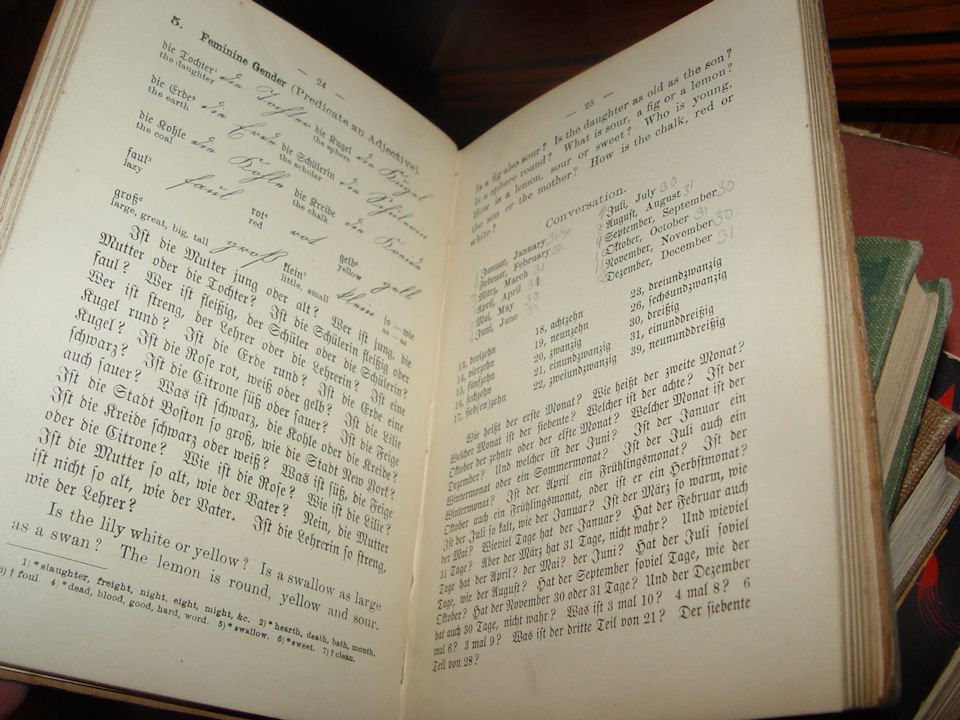 — 24 —
5. Feminine Gender (Predicate an Adjective).
die Tochter¹ die Tochter die Kugel die Kugel
the daughter the sphere
die Erde² die Erde die Schülerin die Schülerin
the earth the scholar
die Kohle die Kohle die Kreide die Kreide
the coal the chalk
faul³ faul rot⁴ rot gelb⁵ gelb
lazy red yellow
groß⁶ groß klein⁷ klein so — wie
large, great, big, tall little, small as — as
Ist die Mutter jung oder alt? Wer ist jung, die
Mutter oder die Tochter? Ist die Schülerin fleißig oder
faul? Wer ist fleißig, der Schüler oder die Schülerin?
Wer ist streng, der Lehrer oder die Lehrerin? Ist eine
Kugel rund? Ist die Erde rund? Ist die Erde eine
Kugel? Ist die Rose rot, weiß oder gelb? Ist die Lilie
schwarz? Ist die Citrone süß oder sauer? Ist die Feige
auch sauer? Was ist schwarz, die Kohle oder die Kreide?
Ist die Stadt Boston so groß, wie die Stadt New York?
Ist die Kreide schwarz oder weiß? Was ist süß, die Feige
oder die Citrone? Wie ist die Rose? Wie ist die Lilie?
Ist die Mutter so alt, wie der Vater? Nein, die Mutter
ist nicht so alt, wie der Vater. Ist die Lehrerin so streng,
wie der Lehrer?
Is the lily white or yellow? Is a swallow as large
as a swan? The lemon is round, yellow and sour.
1) * slaughter, freight, night, eight, might, &c. 2) * hearth, death, bath, mouth,
3) † foul. 4) * dead, blood, good, hard, word. 5) * swallow. 6) * sweet. 7) † clean.
— 25 —
Is a fig also sour? Is the daughter as old as the son?
Is a sphere round? What is sour, a fig or a lemon?
How is a lemon, sour or sweet? Who is young,
the son or the mother? How is the chalk, red or
white?
Conversation.
Januar, January 7 Juli, July 30
Februar, February 8 August, August 31
März, March 31 9 September, September 30
April, April Oktober, October 31
Mai, May November, November 30
Juni, June Dezember, December 31
13, dreizehn 18, achtzehn 23, dreiundzwanzig
14, vierzehn 19, neunzehn 26, sechsundzwanzig
15, fünfzehn 20, zwanzig 30, dreißig
16, sechzehn 21, einundzwanzig 31, einunddreißig
17, sieb(en)zehn 22, zweiundzwanzig 39, neununddreißig
Wie heißt der erste Monat? Wie heißt der zweite Monat?
Welcher Monat ist der siebente? Welcher ist der achte? Ist der
Oktober der zehnte oder der elfte Monat? Welcher Monat ist der
Dezember? Und welcher ist der Juni? Ist der Januar ein
Wintermonat oder ein Sommermonat? Ist der Juli auch ein
Wintermonat? Ist der April ein Frühlingsmonat? Ist der
Oktober auch ein Frühlingsmonat, oder ist er ein Herbstmonat?
Ist der Juli so kalt, wie der Januar? Ist der März so warm, wie
der Mai? Wieviel Tage hat der Januar? Hat der Februar auch
31 Tage? Aber der März hat 31 Tage, nicht wahr? Und wieviel
Tage hat der April? der Mai? der Juni? Hat der Juli soviel
Tage, wie der August? Hat der September soviel Tage, wie der
Oktober? Hat der November 30 oder 31 Tage? Und der Dezember
hat auch 30 Tage, nicht wahr? Was ist 3 mal 10? 4 mal 8? 6
mal 6? 3 mal 9? Was ist der dritte Teil von 21? Der siebente
Teil von 28?